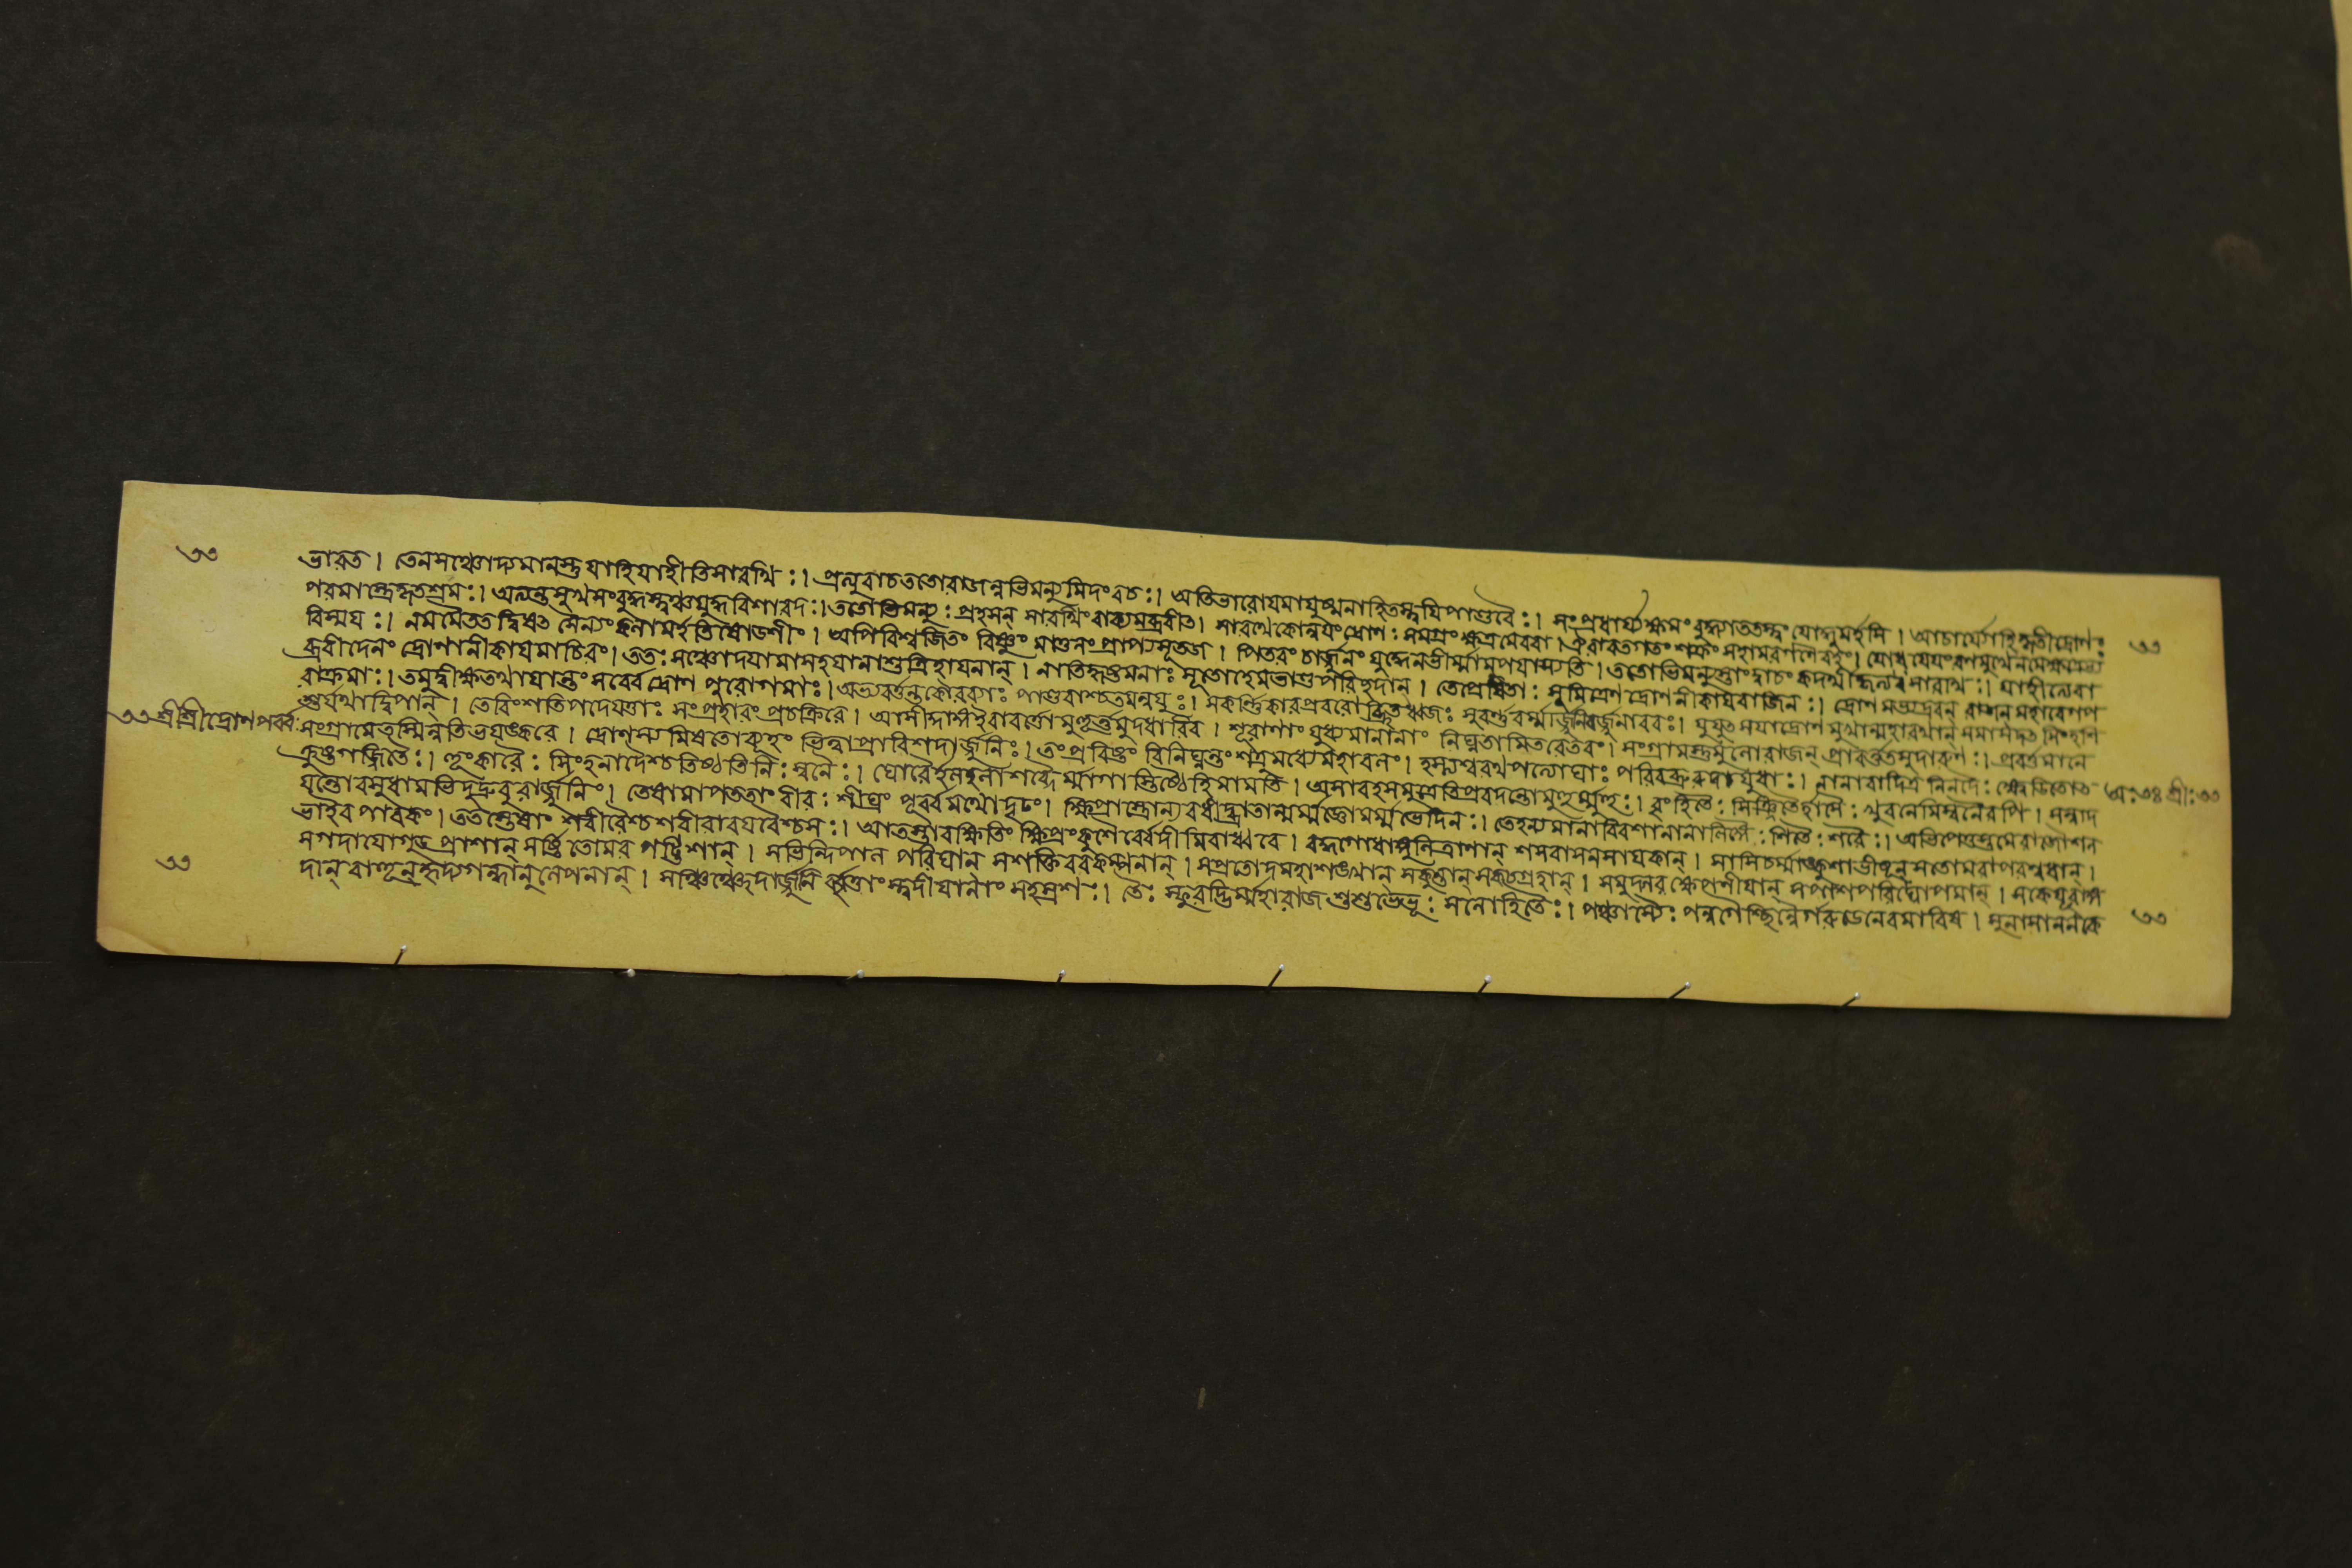 ৩৩
ভারত। তেনসঞ্চোদ্যমানস্তুযাহিযাহীতিসারথিঃ। প্রত্যুবাচততোরাজন্নভিমন্যুমিদংবচঃ। অতিভারোযমাযুষ্মনাহিতস্ত্বযিপাণ্ডবৈঃ। সংপ্রধার্য্যক্ষমংবুদ্ধ্যাততস্ত্বংযোদ্ধুমর্হসি। আচার্য্যোহিকৃতীদ্রোণঃ
পরমাস্ত্রেকৃতশ্রমঃ। অত্যন্তসুখসংবৃদ্ধস্ত্বঞ্চযুদ্ধবিশারদঃ। ততোভিমন্যুঃ প্রহসন্ সারথিংবাক্যমব্রবীত। সারথেকোন্বযংদ্রোণঃ সমগ্রংক্ষত্রমেববা। ঐরাবতগতং শক্রং সহামরগণৈরহং। যোধযেযংরণমুখেনমেক্ষত্রেদ্য
৩৩
বিস্ময়ঃ। নমমৈতত্দ্বিষত সৈন্যংকলামর্হতিষোডশীং। অপিবিশ্বজিতং বিষ্ণুং মাতুলংপ্রাপ্যসূতজ। পিতরং চার্জ্জুনং যুদ্ধেনভীর্ম্মামুপযাস্যতি। ততোভিমন্যুস্তাংবাচং কদর্থীকৃত্যসারথেঃ। যাহীত্যেবা
ব্রবীদেনং দ্রোণানীকাযমাচিরং। ততঃ সঞ্চোদযামাসহযানাশুত্রিহাযনান্। নাতিহৃষ্টমনাঃ সূতোহেমভাণ্ডপরিচ্ছদান্। তেপ্রেষিতাঃ সুমিত্রেণদ্রোণানীকাযবাজিনঃ। দ্রোণমভ্যদ্রবন্ রাজন্মহাবেগপ
রাক্রমাঃ। তমুদ্বীক্ষতথাযান্তং সর্ব্বেদ্রোণ পুরোগমাঃ। অভ্যবর্ত্তন্তকৌরব্যাঃ পাণ্ডবাশ্চতমন্বযুঃ। সকর্ণিকারপ্রবরোচ্ছ্রিতধ্বজঃ সুবর্ণবর্ম্মার্জ্জুনির্জ্জুনাদ্বরঃ। যুযুৎসযাদ্রোণ মুখান্মহারথান্ সমাসদত সিংহশি
শুর্যথাদ্বিপান্। তেবিংশতিপদেযত্তাঃ সংপ্রহারংপ্রচক্রিরে। আসীদ্গাঙ্গইবাবর্ত্তোমুহূর্ত্তমুদধাবিব। শূরাণাং যুধ্যমানানাং নিঘ্নতামিতরেতরং। সংগ্রামস্তুমুলোরাজন্ প্রাবর্ত্ততসুদারুণঃ। প্রবর্ত্তমানে
৩৩শ্রীশ্রীদ্রোণপর্ব্বঃ
সংগ্রামেতস্মিন্নতিভযঙ্করে। দ্রোণস্যমিষতোব্যূহং ভিত্বাপ্রাবিশদার্জ্জুনিঃ। তংপ্রবিষ্টং বিনিঘ্নন্তংশত্রুমধ্যেমহাবলং। হস্ত্যশ্বরথপত্যোঘাঃ পরিবব্রুরুদাযুধাঃ। নানাবাদিত্র নিনদৈঃ ক্ষ্বেডিতোৎ
অঃ৩৪ শ্রীঃ ৩৩
ক্রুষ্টগর্জ্জিতৈঃ। হূংকারৈঃ সিংহনাদৈশ্চতিষ্ঠতিষ্ঠেতিনিঃস্বনৈঃ। ঘোরৈর্হলহলাশব্দৈর্ম্মাগাস্তিষ্ঠেহিমামিতি। অসাবহমমুত্রেতিপ্রবদন্তোমুহুর্ম্মুহুঃ। বৃংহিতৈঃ সিঞ্জিতৈর্হাসৈঃ খুরনেমিস্বনৈরপি। সন্নাদ
যন্তোবসুধামভিদুদ্রুবুরার্জ্জুনিং। তেষামাপততাং বীরঃ শীঘ্রং পূর্ব্বমথোদৃঢং। ক্ষিপ্রাস্ত্রোন্যবধীদ্ব্রাতান্মর্ম্মজ্ঞোমর্ম্মভেদিনঃ। তেহন্যমানাবিবশানানালিঙ্গৈঃ শিতৈঃ শরৈঃ। অভিপেতুস্তমেবাজৌশল
ভাইব পাবকং। ততস্তেষাং শরীরৈশ্চশরীরাবযবৈশ্চসঃ। আতস্তারক্ষিতিং ক্ষিপ্রংকুশৈর্ব্বেদীমিবাধ্বরে। বদ্ধগোধাঙ্গুলিত্রাণান্ শরাবাসনসাযকান্। সাসিচর্ম্মাঙ্কুশাভীষূন্ সতোমরাপরশ্বধান্।
সগদাযোগুড প্রাশান্ সর্ষ্টিতোমর পট্টিশান্। সভিন্দিপাল পরিঘান্ সশক্তিবরকম্পনান্। সপ্রতোদমহাশঙখান্ সকুন্তান্ সকচগ্রহান্। সমুদ্গরক্ষেপণীযান্ সপাশপরিঘোপমান্। সকেযূরাঙ্গ
৩৩
দান্ বাহূন্ হৃদ্যগন্ধানুলেপনান্। সঞ্চিচ্ছেদার্জ্জুনিবৃত্তাংস্ত্বদীযানাং সহস্রশঃ। তৈঃ স্ফুরদ্ভির্ম্মহারাজশুশুভেভূঃ সলোহিতৈঃ। পঞ্চাস্যৈঃ পন্নগৈশ্ছিন্নৈর্গরুডেনেবমারিষ। সুনাসাননকে
৩৩